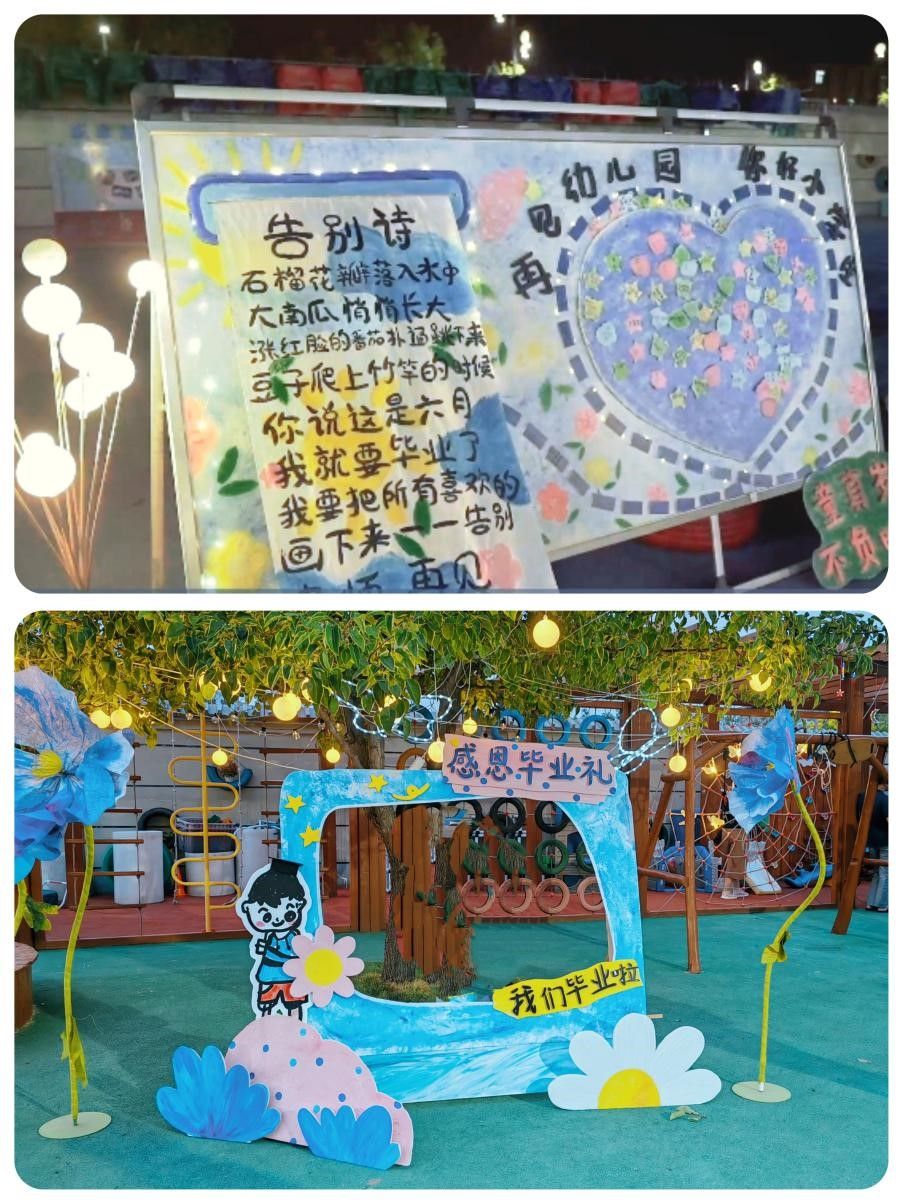 告别诗
石榴花瓣落入水中
大南瓜悄悄长大
涨红脸的番茄扑通跳下来
豆子爬上竹竿的时候
你说这是六月
我就要毕业了
我要把所有喜欢的
画下来一一告别
再见
再见幼儿园
你好大
童真岁
不负
感恩毕业礼
我们毕业啦